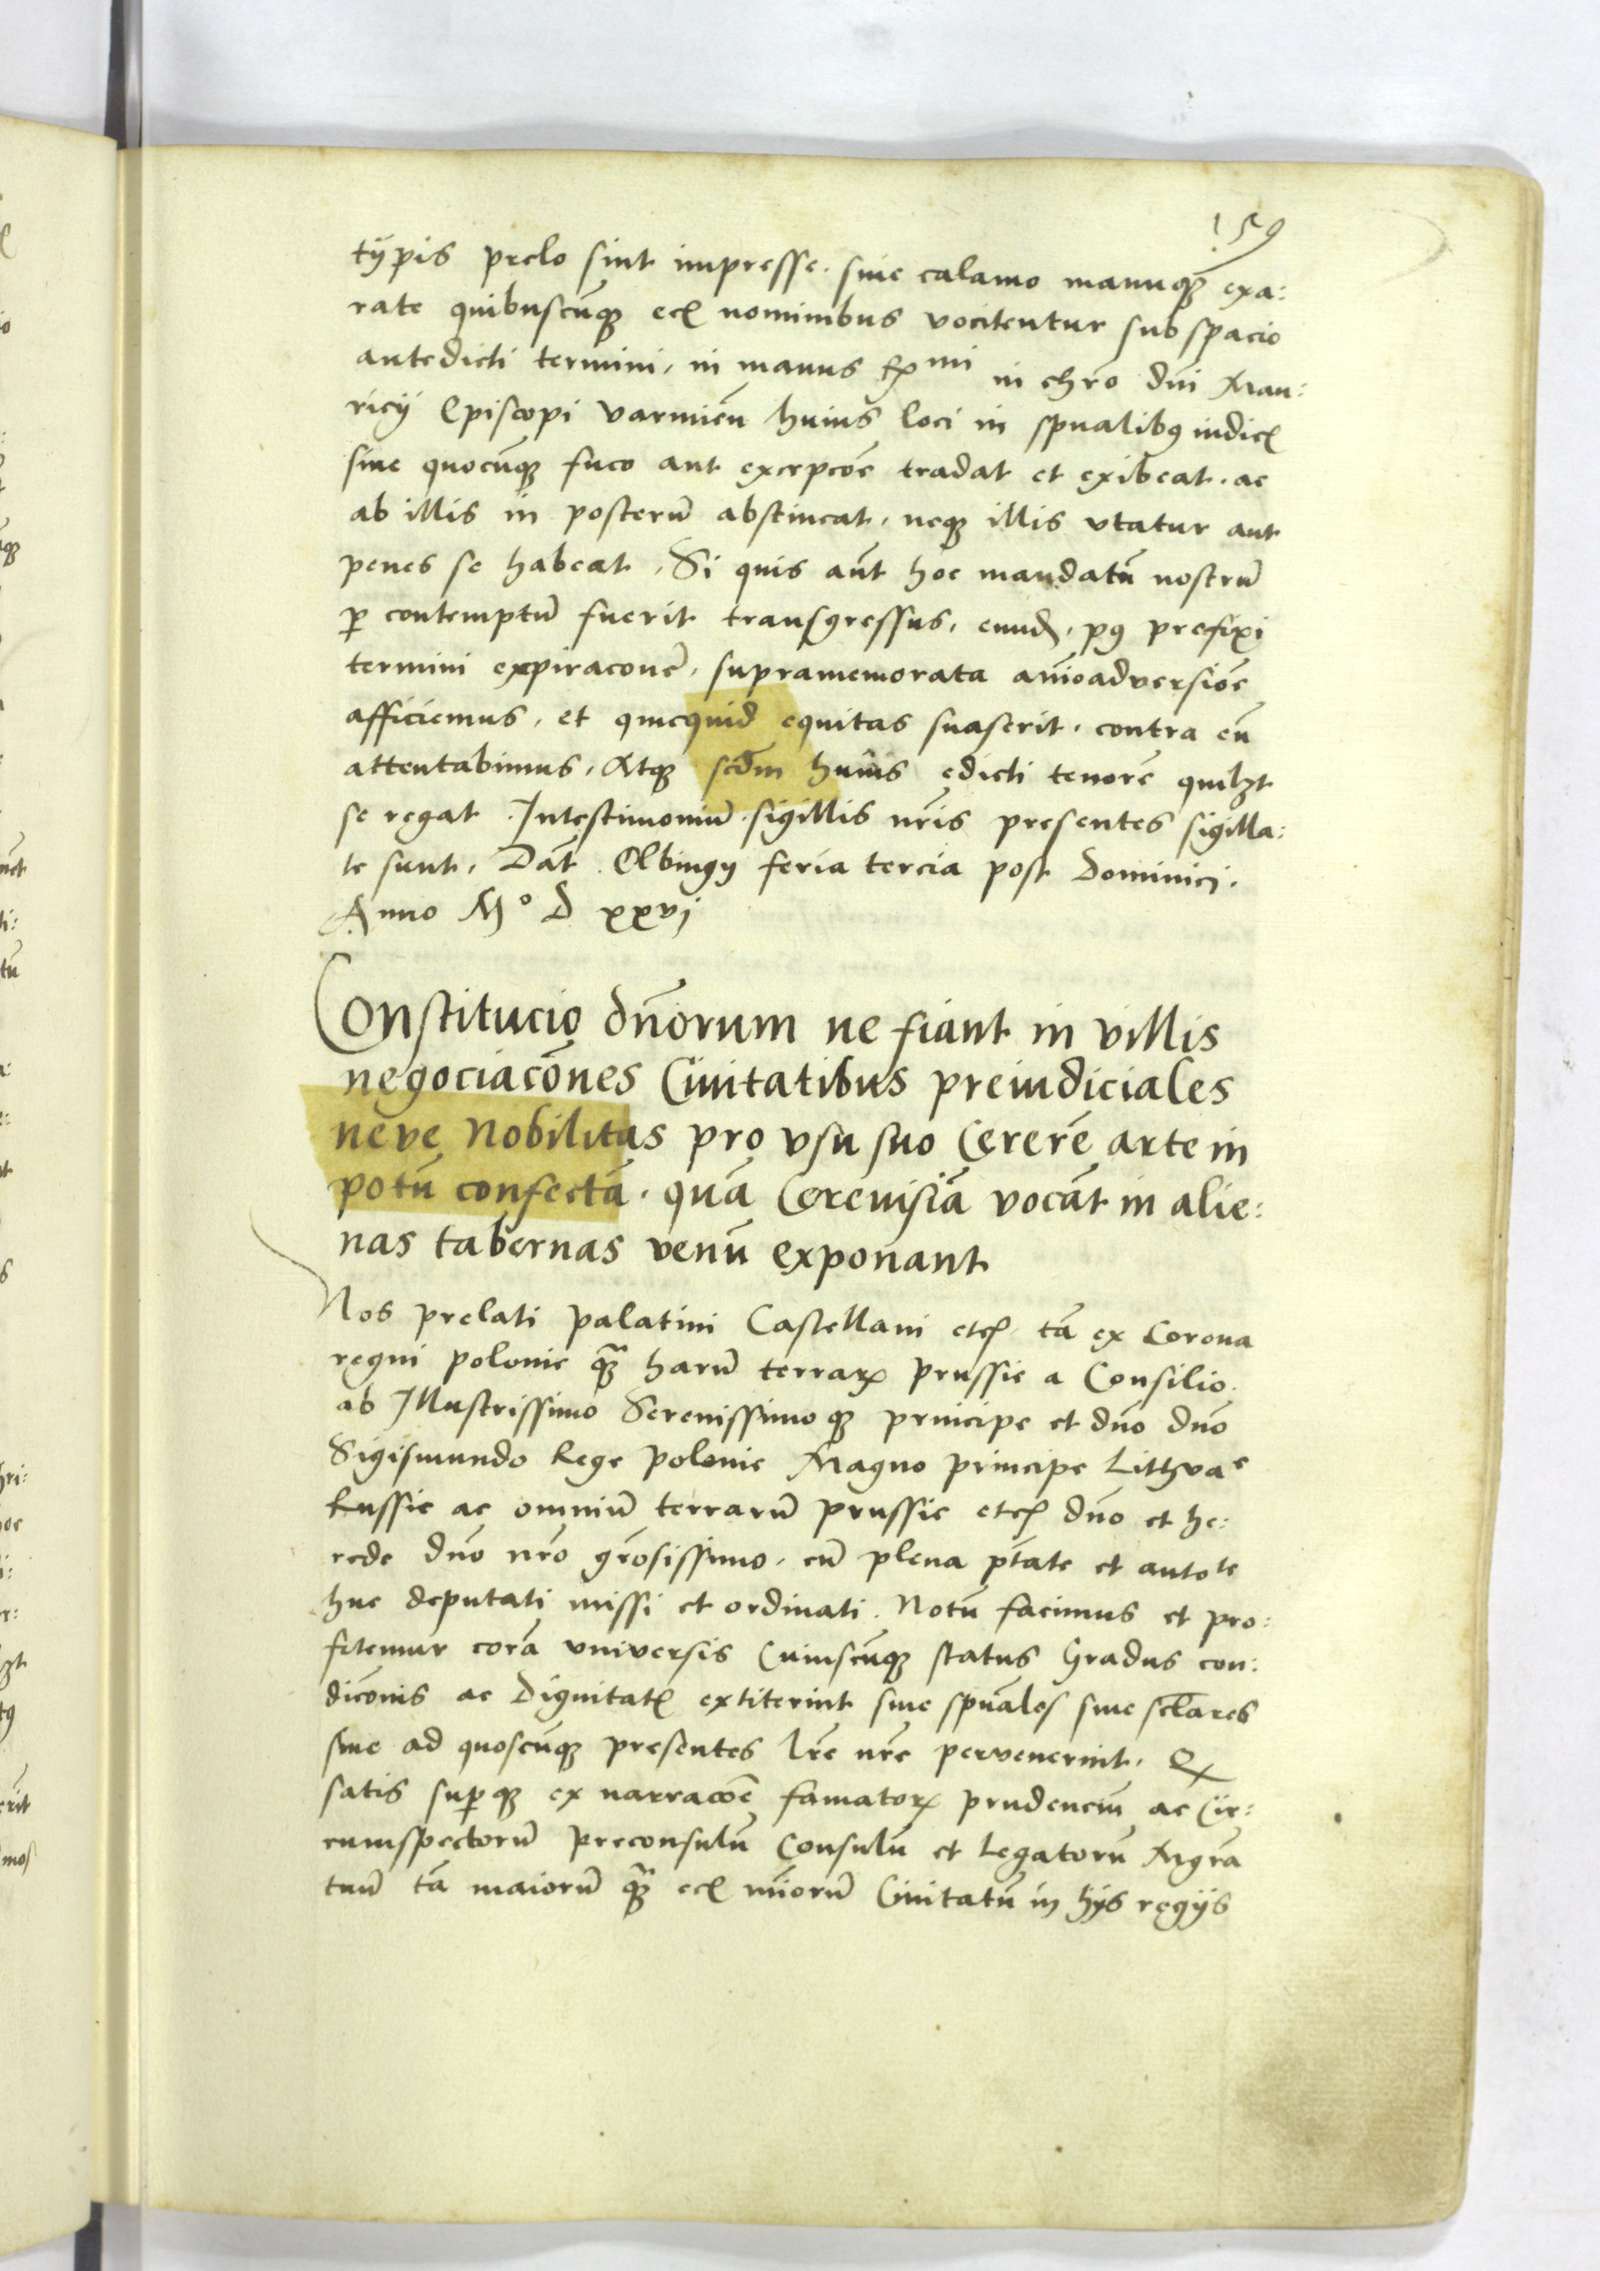 159
typis prelo sint impresse. siue calamo manuqꝫ exa:
rate quibuscūqꝫ ecꝭ nominibus vocitentur sub spacio
antedicti termini, in manus Rmi in chrō dni Mau:
ricij Episcopi varmieñ huius loci in spūalibꝰ iudicꝭ
sine quocūqꝫ fuco aut excepcōe tradat et exibeat. ac
ab illis in posterū abstineat, neqꝫ illis vtatur aut
penes se habeat. Si quis aūt hoc mandatū nostrū
ꝑ contemptū fuerit transgressus, eund, pꝰ prefixi
termini expiracionē, supramemorata aīoadversiōe
afficiemus, et quicquid equitas suaserit, contra eū
attentabimus, Atqꝫ scdm huius edicti tenorē quilꝫt
se regat. Intestimoniū. sigillis nr̄is presentes sigilla:
te sunt, Dat̄. Elbingij feria tercia post Dominici.
Anno Mº D xxvj
Constitucio dn̄orum ne fiant in villis
negociacōnes Ciuitatibus preiudiciales
neve Nobilitas pro vsu suo Cererē arte in
potū confectā. quā Cereuisiā vocāt in alie:
nas tabernas venū exponant
Nos prelati palatini Castellani etcꝭ tā ex Corona
regni polonie qꝫ̄ harū terraꝝ prussie a Consilio.
ab Illustrissimo Serenissimoqꝫ principe et dn̄o dn̄o
Sigismundo Rege polonie Magno principe Litthvae
Russie ac omniū terrarū prussie etcꝭ dn̄o et he:
rede dn̄o nr̄o gr̄osissimo, cū plena ptāte et autote
huc deputati missi et ordinati. Notū facimus et pro:
fitemur corā vniversis Cuiuscūqꝫ status Gradus con:
dicōnis ac Dignitatꝭ extiterint siue spūales siue sclares
siue ad quoscūqꝫ presentes lr̄e nr̄e pervenerint. Qꝫ
satis suꝑqꝫ ex narracōe famatoꝝ prudenciū ac Cir:
cumspectorū preconsulū Consulū et Legatorū Mgrā
tuū tā maiorū qꝫ̄ ecꝭ mīorū Ciuitatū in hijs regijs